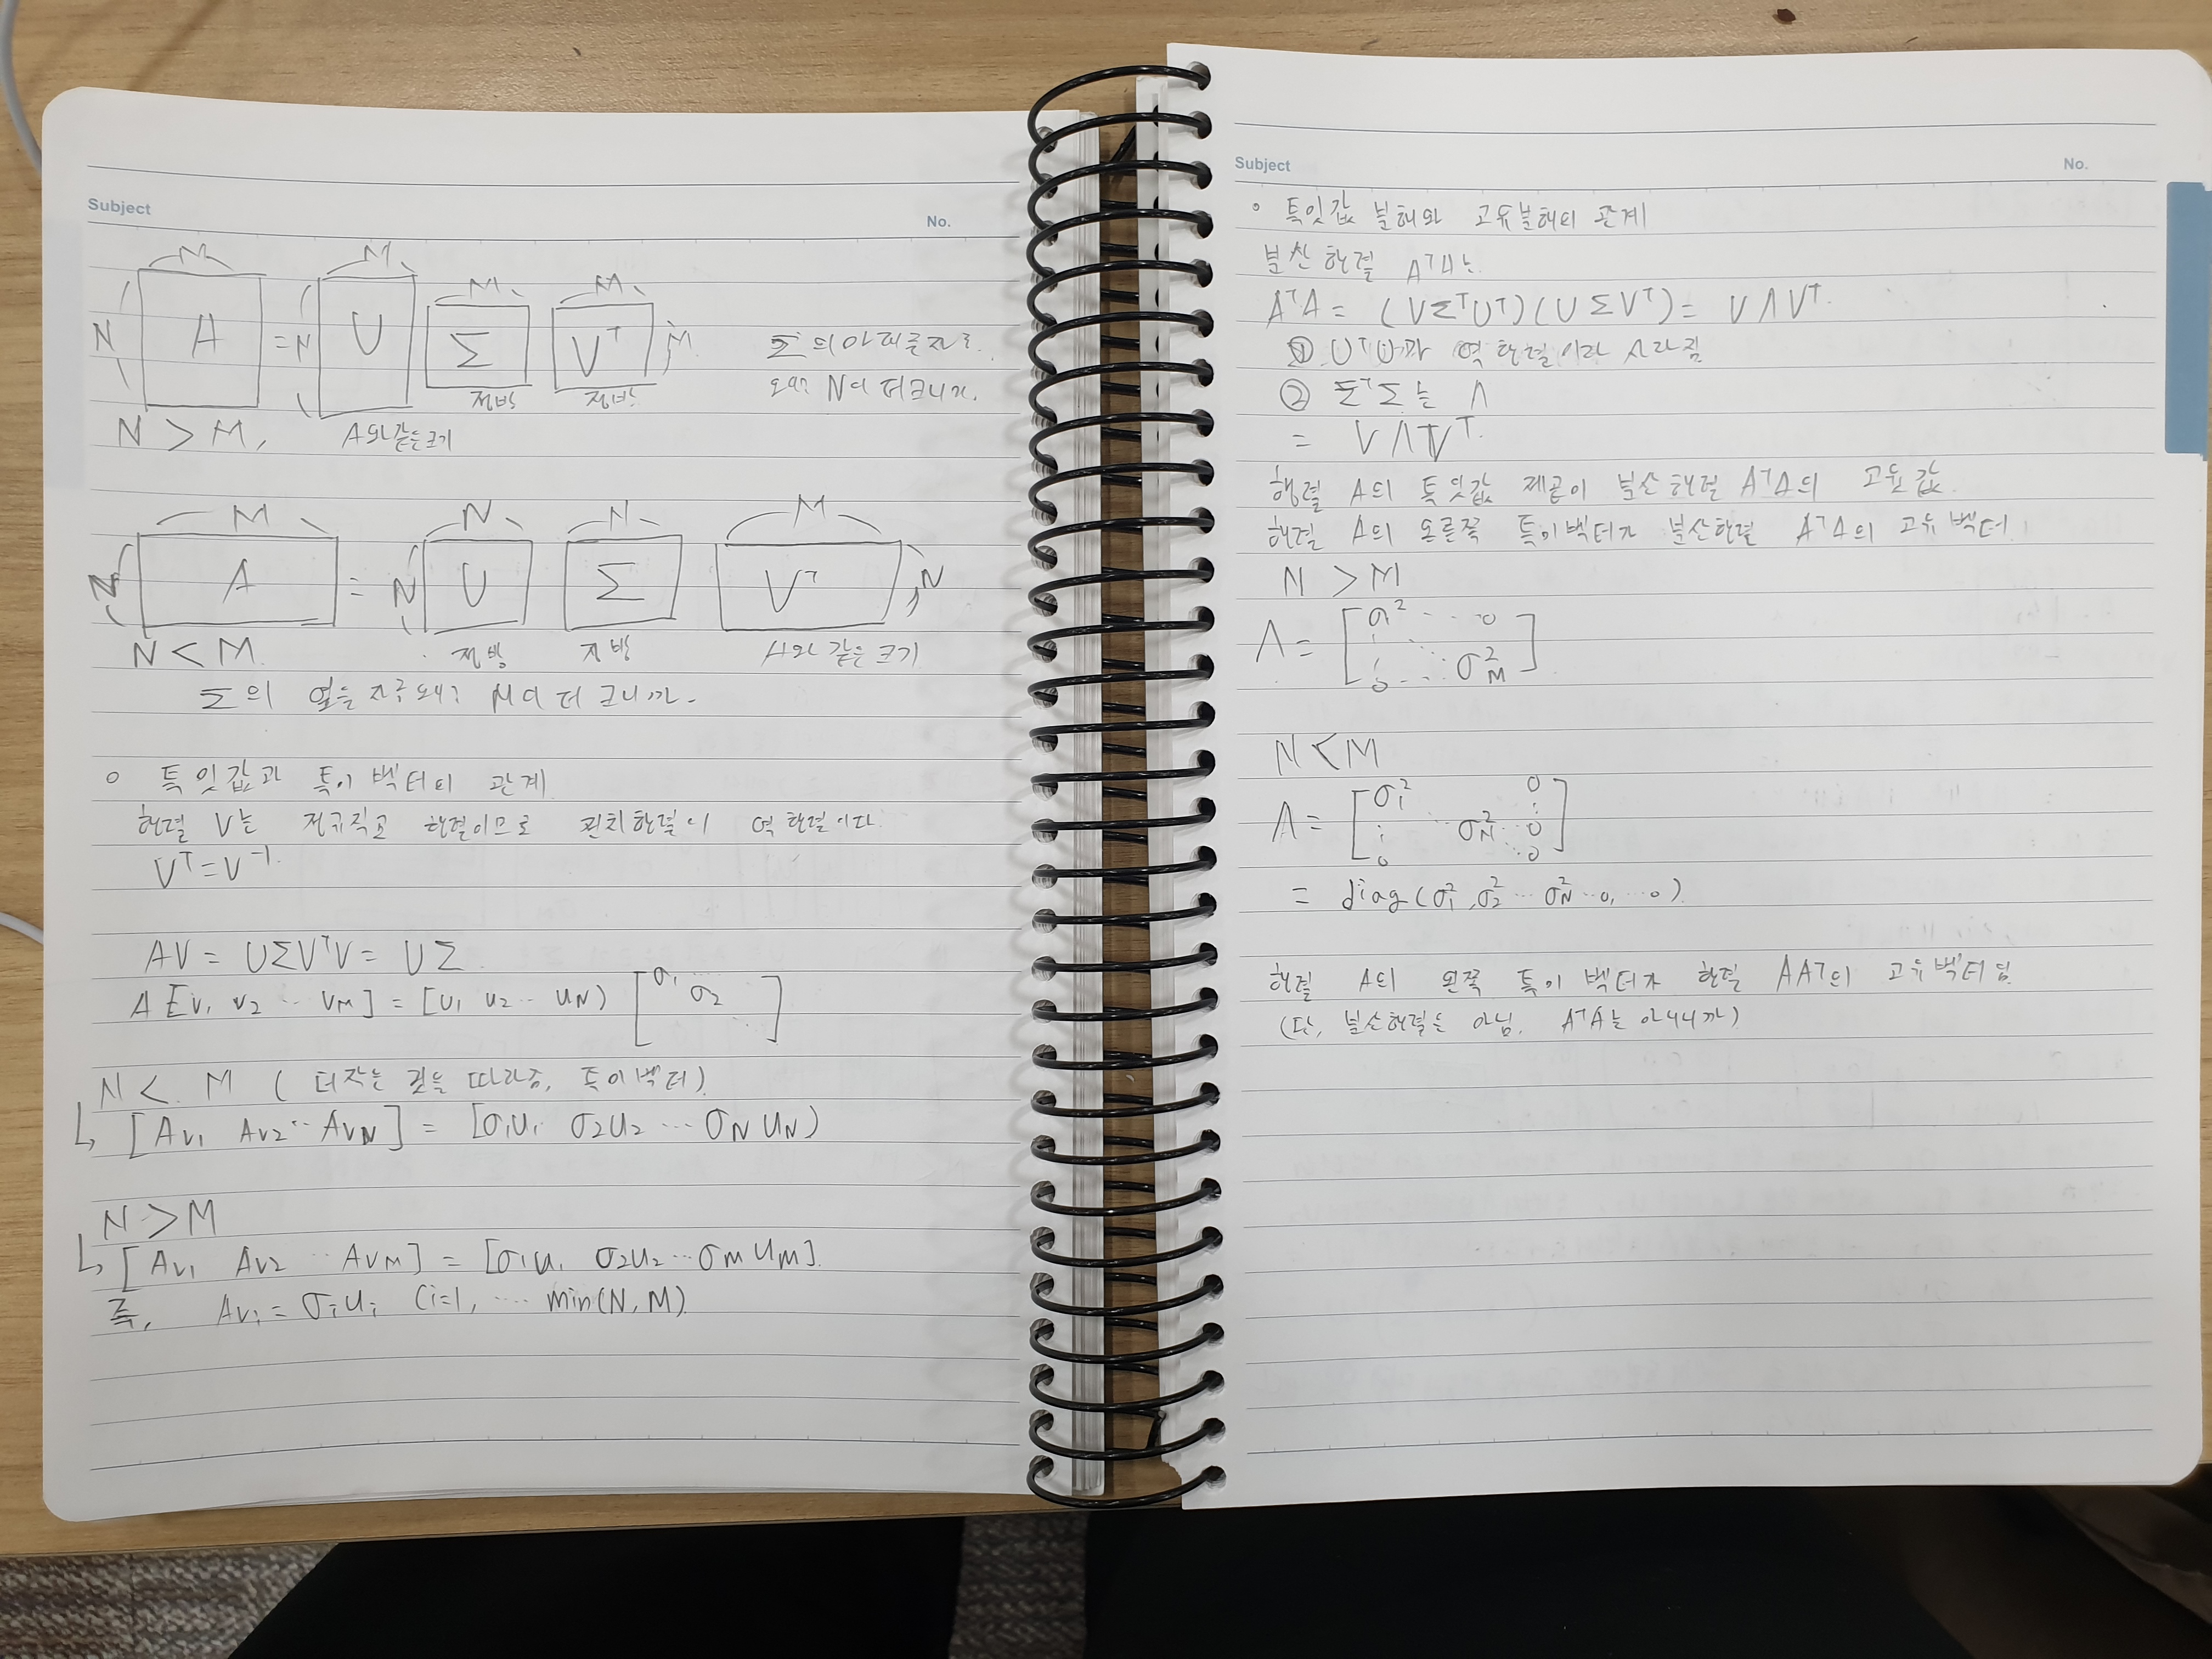 Subject
No.
M M M M
N A = N U Σ V^T M
Σ의 아래를 자름.
왜? N이 더 크니까.
정방 정방
N > M, A와 같은 크기
M N N M
N A = N U Σ V^T N
N < M 정방 정방 A와 같은 크기
Σ의 열을 자름 왜? M이 더 크니까.
○ 특잇값과 특이벡터의 관계
행렬 V는 정규직교 행렬이므로 전치행렬이 역행렬이다
V^T = V^-1.
AV = UΣV^TV = UΣ
A[v1 v2 ⋯ vM] = [u1 u2 ⋯ uN] [σ1 σ2]
N < M (더 작은 값을 따라줌, 특이벡터)
↳ [Av1 Av2 ⋯ AvN] = [σ1u1 σ2u2 ⋯ σN uN)
N > M
↳ [Av1 Av2 ⋯ AvM] = [σ1u1 σ2u2 ⋯ σM uM].
즉, Avi = σi ui (i=1, ⋯ min(N, M)
Subject
No.
○ 특잇값 분해와 고유분해의 관계
분산행렬 A^TA는
A^TA = (VΣ^TU^T)(UΣV^T) = VΛV^T
① U^TU과 역행렬이라 사라짐
② Σ^TΣ는 Λ
= VΛV^T
행렬 A의 특잇값 제곱이 분산행렬 A^TA의 고윳값
행렬 A의 오른쪽 특이벡터가 분산행렬 A^TA의 고유벡터
N > M
Λ = [σ1^2 ⋯ 0
⋮ ⋱
0 ⋯ σM^2]
N < M
Λ = [σ1^2 0
⋮ ⋱ σN^2 ⋯ 0
0 ⋱ 0]
= diag(σ1^2, σ2^2 ⋯ σN^2 ⋯ 0, ⋯ 0)
행렬 A의 왼쪽 특이벡터가 행렬 AA^T의 고유벡터임
(단, 분산행렬은 아님. A^TA는 아니니까)